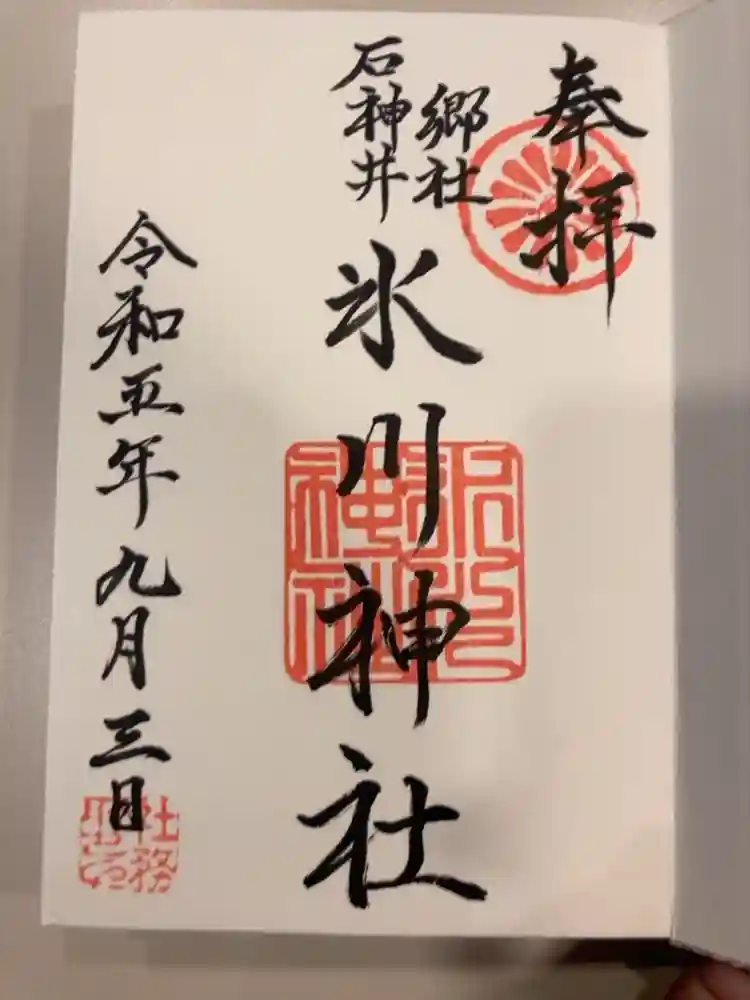 奉拝
郷社
石神井
氷川神社
令和五年九月三日
社務